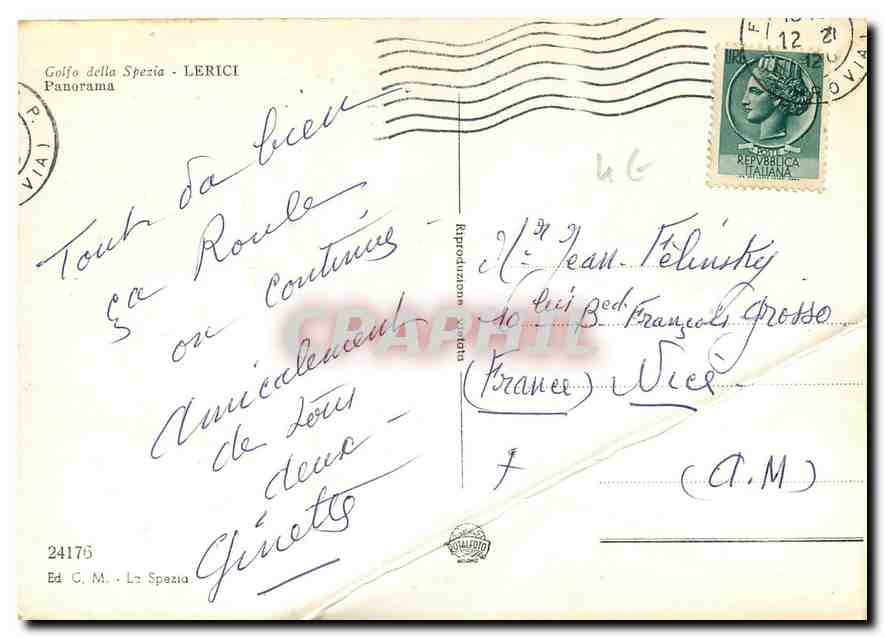 Golfo della Spezia - LERICI
Panorama
Tout va bien -
ça Roule
on continue -
Amicalement
de tous
deux -
Ginette
24176
Ed. C. M. - La Spezia
Riproduzione vietata
ROTALFOTO
MILANO
CPAPHIL
12 21
OVIA)
P.
VIA)
LIRE 12
POSTE
REPVBBLICA
ITALIANA
Mr Jean Félinsky
10 bis Bd François Grosso
(France) Nice
(A.M)